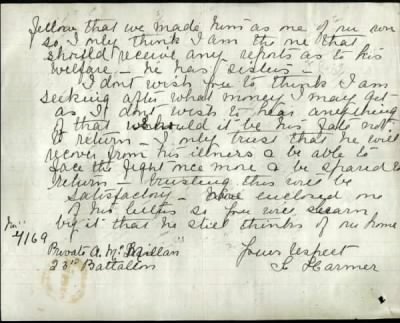 fellow that we made him as one of our own
so I only think I am the one that
should receive any reports as to his
welfare - he has sisters -
I dont wish you to think I am
seeking after what money I may get
as I dont wish to hear anything
of that should it be his fate not
to return - I only trust that he will
recover from his illness & be able to
face the fight once more & be spared to
return - trusting this will be
satisfactory - Have enclosed one
of his letters so you will learn
by it that he still thinks of our home
No 4169
Private A. McMillan
23rd Battalion
Yours respect
Harmer